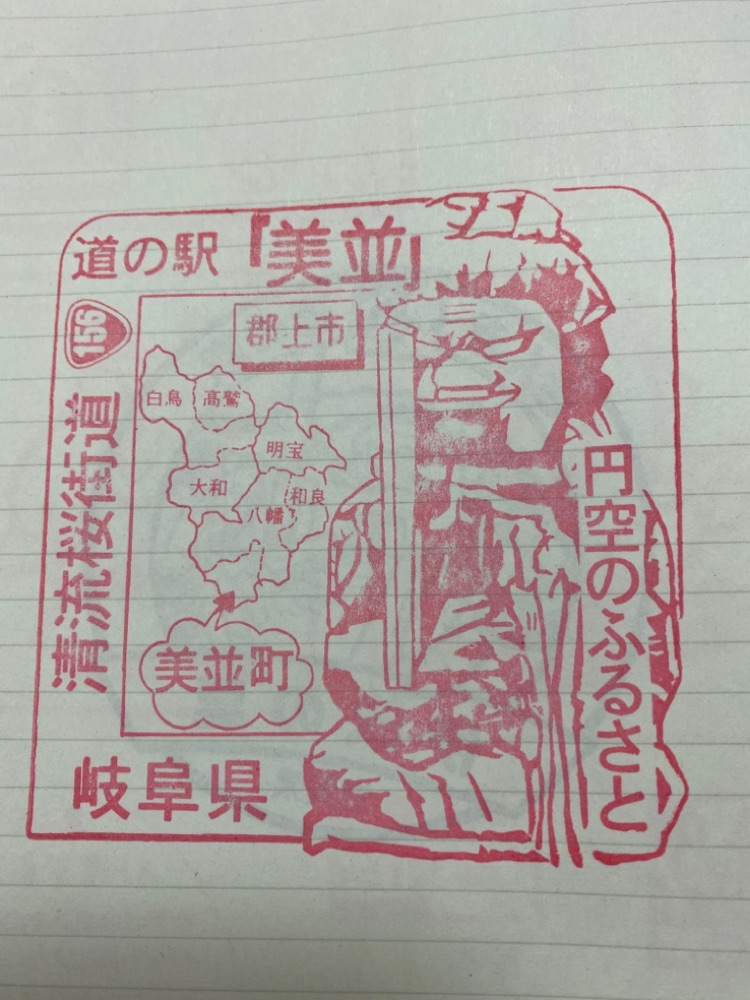 道の駅「美並」
156
清流桜街道
郡上市
白鳥
高鷲
明宝
大和
和良
八幡
美並町
円空のふるさと
岐阜県